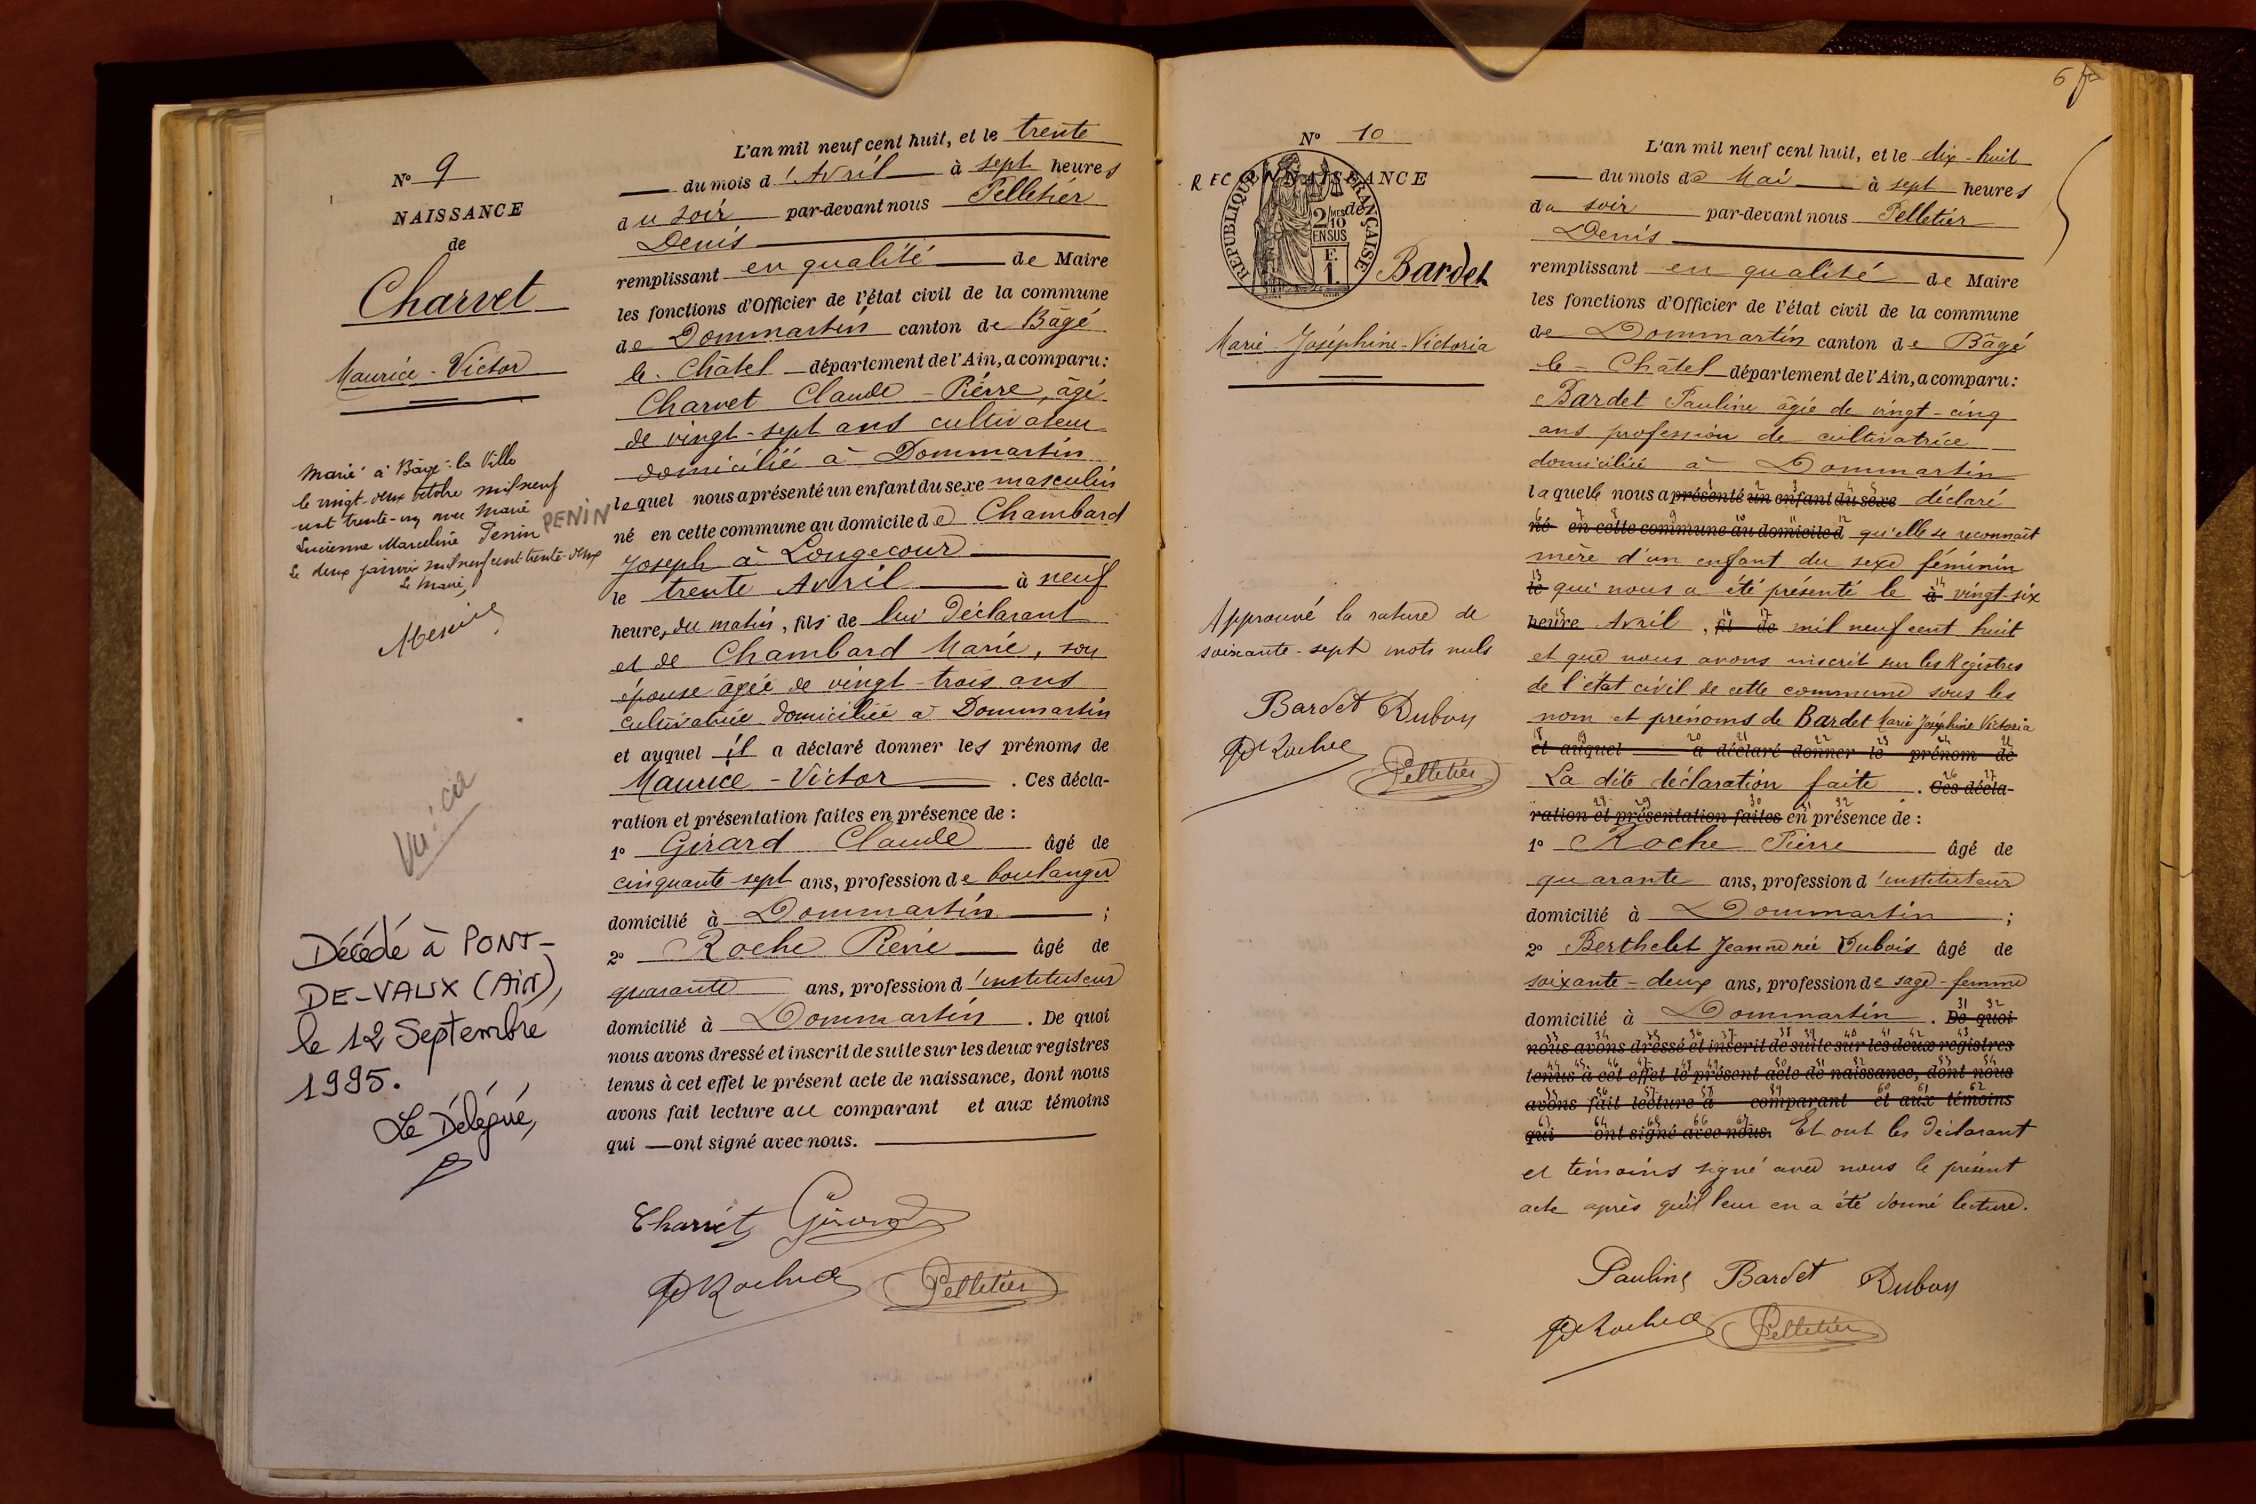 N° 9
NAISSANCE
de
Charvet
Maurice-Victor
Marié à Bâgé-la Ville
le vingt-deux octobre mil neuf
cent trente-un avec Marie
Lucienne Marceline Penin PENIN
Le deux janvier mil neuf cent trente-deux
Le Maire,
Décédé à PONT-
DE-VAUX (Ain),
le 12 Septembre
1995.
Le Délégué,
L'an mil neuf cent huit, et le trente
du mois d'Avril à sept heures
du soir par-devant nous Pelletier
Denis
remplissant en qualité de Maire
les fonctions d'Officier de l'état civil de la commune
de Dommartin canton de Bâgé
le-Châtel département de l'Ain, a comparu:
Charvet Claude-Pierre, âgé
de vingt-sept ans cultivateur
domicilié à Dommartin
lequel nous a présenté un enfant du sexe masculin
né en cette commune au domicile de Chambard
Joseph à Longecour
le trente Avril à neuf
heure, du matin, fils de lui déclarant
et de Chambard Marie, son
épouse âgée de vingt-trois ans
cultivatrice domiciliée à Dommartin
et auquel il a déclaré donner les prénoms de
Maurice-Victor. Ces décla-
ration et présentation faites en présence de:
1° Girard Claude âgé de
cinquante-sept ans, profession de boulanger
domicilié à Dommartin;
2° Roche Pierre âgé de
quarante ans, profession d'instituteur
domicilié à Dommartin. De quoi
nous avons dressé et inscrit de suite sur les deux registres
tenus à cet effet le présent acte de naissance, dont nous
avons fait lecture au comparant et aux témoins
qui ont signé avec nous.
Charvet Girard
Roche Pelletier
6
N° 10
RECONNAISSANCE
de
REPUBLIQUE FRANÇAISE
2/10MES
EN SUS
F.
1.
Bardet
Marie-Joséphine-Victoria
Approuvé la rature de
soixante-sept mots nuls
Bardet Duboy
Roche
Pelletier
L'an mil neuf cent huit, et le dix-huit
du mois de Mai à sept heures
du soir par-devant nous Pelletier
Denis
remplissant en qualité de Maire
les fonctions d'Officier de l'état civil de la commune
de Dommartin canton de Bâgé
le-Châtel département de l'Ain, a comparu:
Bardet Pauline âgée de vingt-cinq
ans profession de cultivatrice
domiciliée à Dommartin
laquelle nous a présenté un enfant du sexe déclaré
né en cette commune au domicile d qu'elle se reconnaît
mère d'un enfant du sexe féminin
le qui nous a été présenté le à vingt-six
heure Avril, fil de mil neuf cent huit
et que nous avons inscrit sur les Registres
de l'état civil de cette commune sous les
nom et prénoms de Bardet Marie Joséphine Victoria
et auquel a déclaré donner le prénom de
La dite déclaration faite. Ces décla-
ration et présentation faites en présence de:
1° Roche Pierre âgé de
quarante ans, profession d'instituteur
domicilié à Dommartin;
2° Berthelet Jeanne née Dubois âgé de
soixante-deux ans, profession de sage-femme
domicilié à Dommartin. De quoi
nous avons dressé et inscrit de suite sur les deux registres
tenus à cet effet le présent acte de naissance, dont nous
avons fait lecture à comparant et aux témoins
qui ont signé avec nous. Et ont les déclarant
et témoins signé avec nous le présent
acte après qu'il leur en a été donné lecture.
Pauline Bardet Duboy
Roche Pelletier